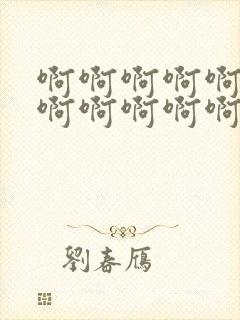 啊啊啊啊啊
啊啊啊啊啊
劉春雁